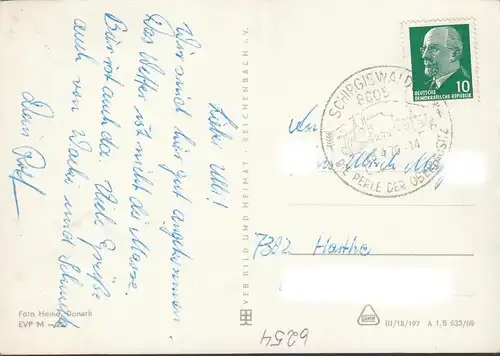 Lieber Ulli!
Wir sind hier gut angekommen
Das Wetter ist nicht die Masse.
Bur ist auch da. Viele Grüße
auch von Vati und
Dein Rolf
VEB BILD UND HEIMAT · REICHENBACH i. V.
Foto Heiner Donath
EVP M
DEUTSCHE
DEMOKRATISCHE REPUBLIK
10
SCHIRGISWALDE
8605
DIE PERLE DER OBERLAUSITZ
An
Ulrich
7302 Hartha
6254
DAMW
III/18/197 A 1, B 633/69